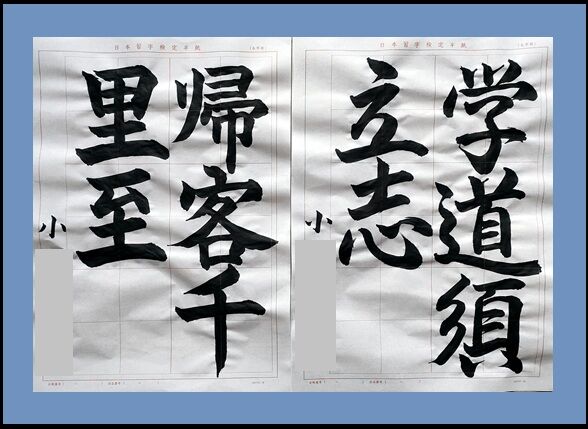 日本習字検定半紙
学道須
立志
小
日本習字検定半紙
帰客千
里至
小